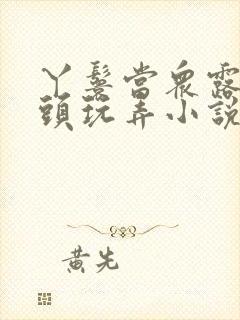 丫鬟當眾露
頭玩弄小說
黃先